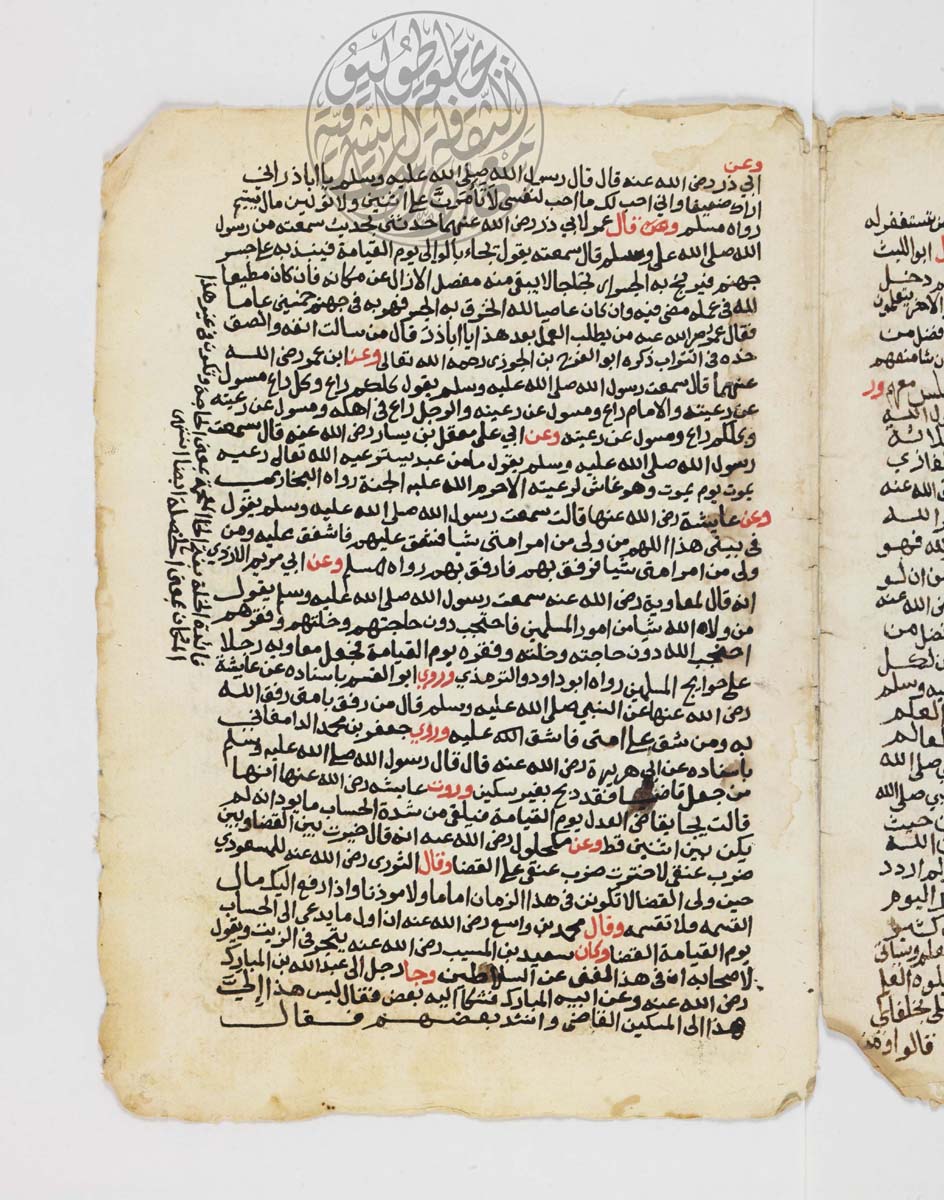 وعن
ابي ذر رضي الله عنه قال قال رسول الله صلى الله عليه وسلم يا اباذر اني
اراك ضعيفا واني احب لك ما احب لنفسي لا تأمرن على اثنين ولا تولين مال يتيم
رواه مسلم وعن قال عمر لابي ذر رضي الله عنهما حدثني بحديث سمعته من رسول
الله صلى الله عليه وسلم قال سمعته يقول يجاء بالوالي يوم القيامة فينبذ به على جسر
جهنم فيرتج به الجسر ارتجاجا لا يبقى منه مفصل الا زال عن مكانه فان كان مطيعا
لله في عمله مضى فيه وان كان عاصيا لله انخرق به الجسر فهو به في جهنم خمسين عاما
فقال عمر رضي الله عنه من يطلب العمل بعد هذا يا اباذر قال من سالت انفه والصق
خده في التراب ذكره ابو الفرج بن الجوزي رحمه الله تعالى وعن ابن عمر رضي الله
عنهما قال سمعت رسول الله صلى الله عليه وسلم يقول كلكم راع وكل راع مسول
عن رعيته والامام راع ومسول عن رعيته والرجل راع في اهله ومسول عن رعيته
وكلكم راع ومسول عن رعيته وعن ابي علي معقل بن يسار رضي الله عنه قال سمعت
رسول الله صلى الله عليه وسلم يقول ما من عبد يسترعيه الله تعالى رعيه
يموت يوم يموت وهو غاش لرعيته الا حرم الله عليه الجنة رواه البخاري
وعن عايشة رضي الله عنها قالت سمعت رسول الله صلى الله عليه وسلم يقول
في بيتي هذا اللهم من ولى من امر امتي شيا فشق عليهم فاشقق عليه ومن
ولى من امر امتي شيا فرفق بهم فارفق بهم رواه مسلم وعن ابي مريم الازدي
انه قال لمعاوية رضي الله عنه سمعت رسول الله صلى الله عليه وسلم يقول
من ولاه الله شيا من امور المسلمين فاحتجب دون حاجتهم وخلتهم وفقرهم
احتجب الله دون حاجته وخلته وفقره يوم القيامة فجعل معاويه رجلا
على حوايج المسلمين رواه ابوداود والترمذي وروي ابو القسم باسناده عن عائشة
رضي الله عنها عن النبي صلى الله عليه وسلم قال من رفق بامتي رفق الله
به ومن شق على امتي فاشق الله عليه وروي جعفر بن محمد الدامغاني
باسناده عن ابي هريرة رضي الله عنه قال قال رسول الله صلى الله عليه وسلم
من جعل قاضيا فقد ذبح بغير سكين وروت عايشه رضي الله عنها انها
قالت يجا بقاضي العدل يوم القيامة فيلقى من شدة الحساب ما يود انه لم
يكن بين اثنين قط وعن مكحول رضي الله عنه انه قال خيرت بين القضا وبين
ضرب عنقي لاخترت ضرب عنقي على القضا وقال الثوري رضي الله عنه للمسعودي
حين ولى القضا لا تكونن في هذا الزمان اماما ولا موذنا واذا رفع اليك مال
القسمه ولا تقسمه وقال محمد بن واسع رضي الله عنه ان اول ما يدعى الى الحساب
يوم القيامة القضا وكان سعيد بن المسيب رضي الله عنه يتجر في الزيت ويقول
لاصحابه ان في هذا لغنى عن السلاطين وجا رجل الى عبدالله بن المبارك
رضي الله عنه وعن ابيه المبارك فشكا اليه بعض فقال ليس هذا الي
هذا الى المسكين القاضي وانشد بعضهم فقال
فائدة الخلة بفتح الخا المعجمة بمعنى الحاجة وتكون في غير هذا
المكان بمعنى الخصلة ايضا انتهى
ن تستغفر له
ابو الليث
دخل
فضل من
عنه
الله
فهو
ان لو
الله عنه
فضل من
لكل
وسلم
العلم
العالم
صلى الله
صلى الله
حيث
الله
ازدد
اليوم
قالوا